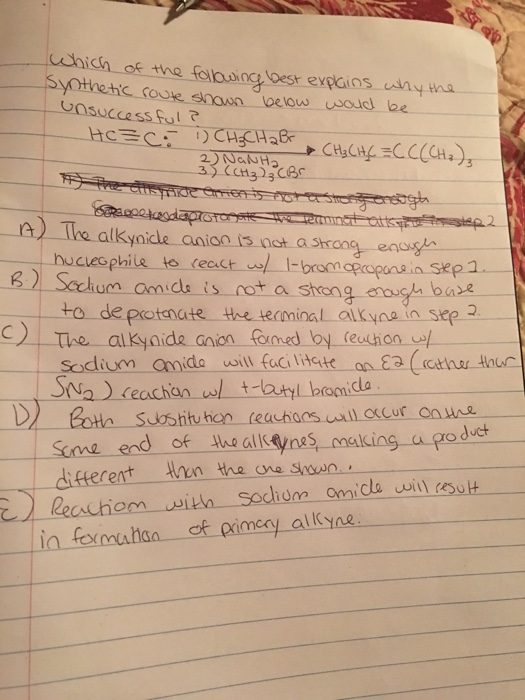 Which of the following best explains why the
synthetic route shown below would be
unsuccessful?
HC≡C:⁻ 1) CH3CH2Br → CH3CH2C≡CC(CH3)3
2) NaNH2
3) (CH3)3CBr
A) The alkynide anion is not a strong enough
2
A) The alkynide anion is not a strong enough
nucleophile to react w/ 1-bromopropane in step 1.
B.) Sodium amide is not a strong enough base
to deprotonate the terminal alkyne in step 2.
C) The alkynide anion formed by reaction w/
sodium amide will facilitate an E2 (rather than
SN2) reaction w/ t-butyl bromide.
D) Both substitution reactions will occur on the
same end of the alkynes, making a product
different than the one shown.
E) Reaction with sodium amide will result
in formation of primary alkyne.